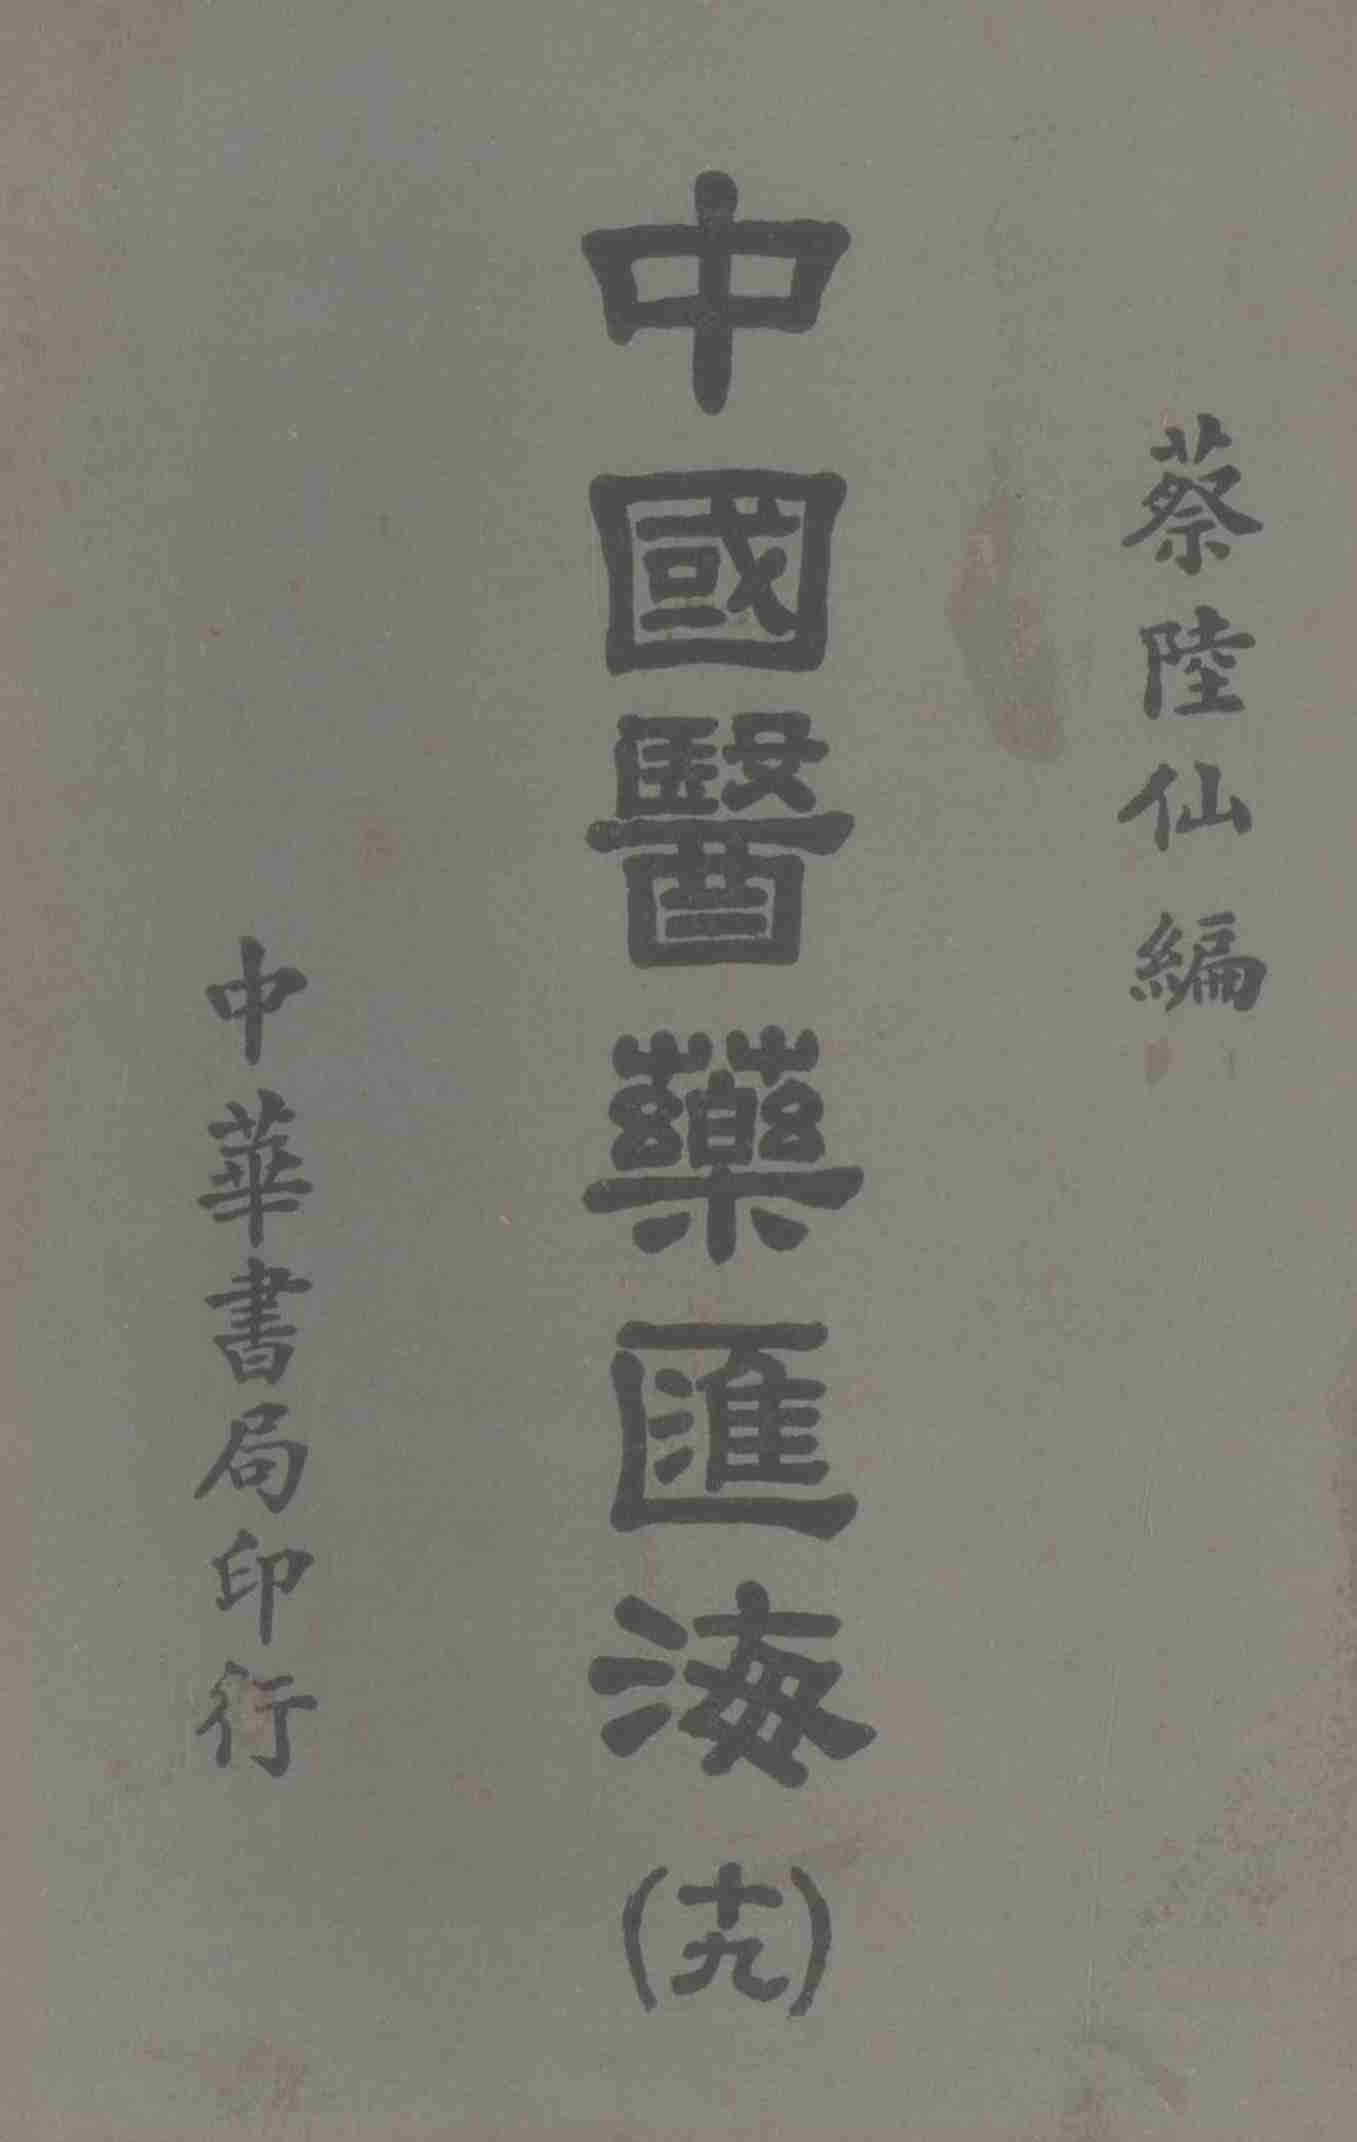 蔡陸仙編
中國醫藥匯海(十九)
中華書局印行